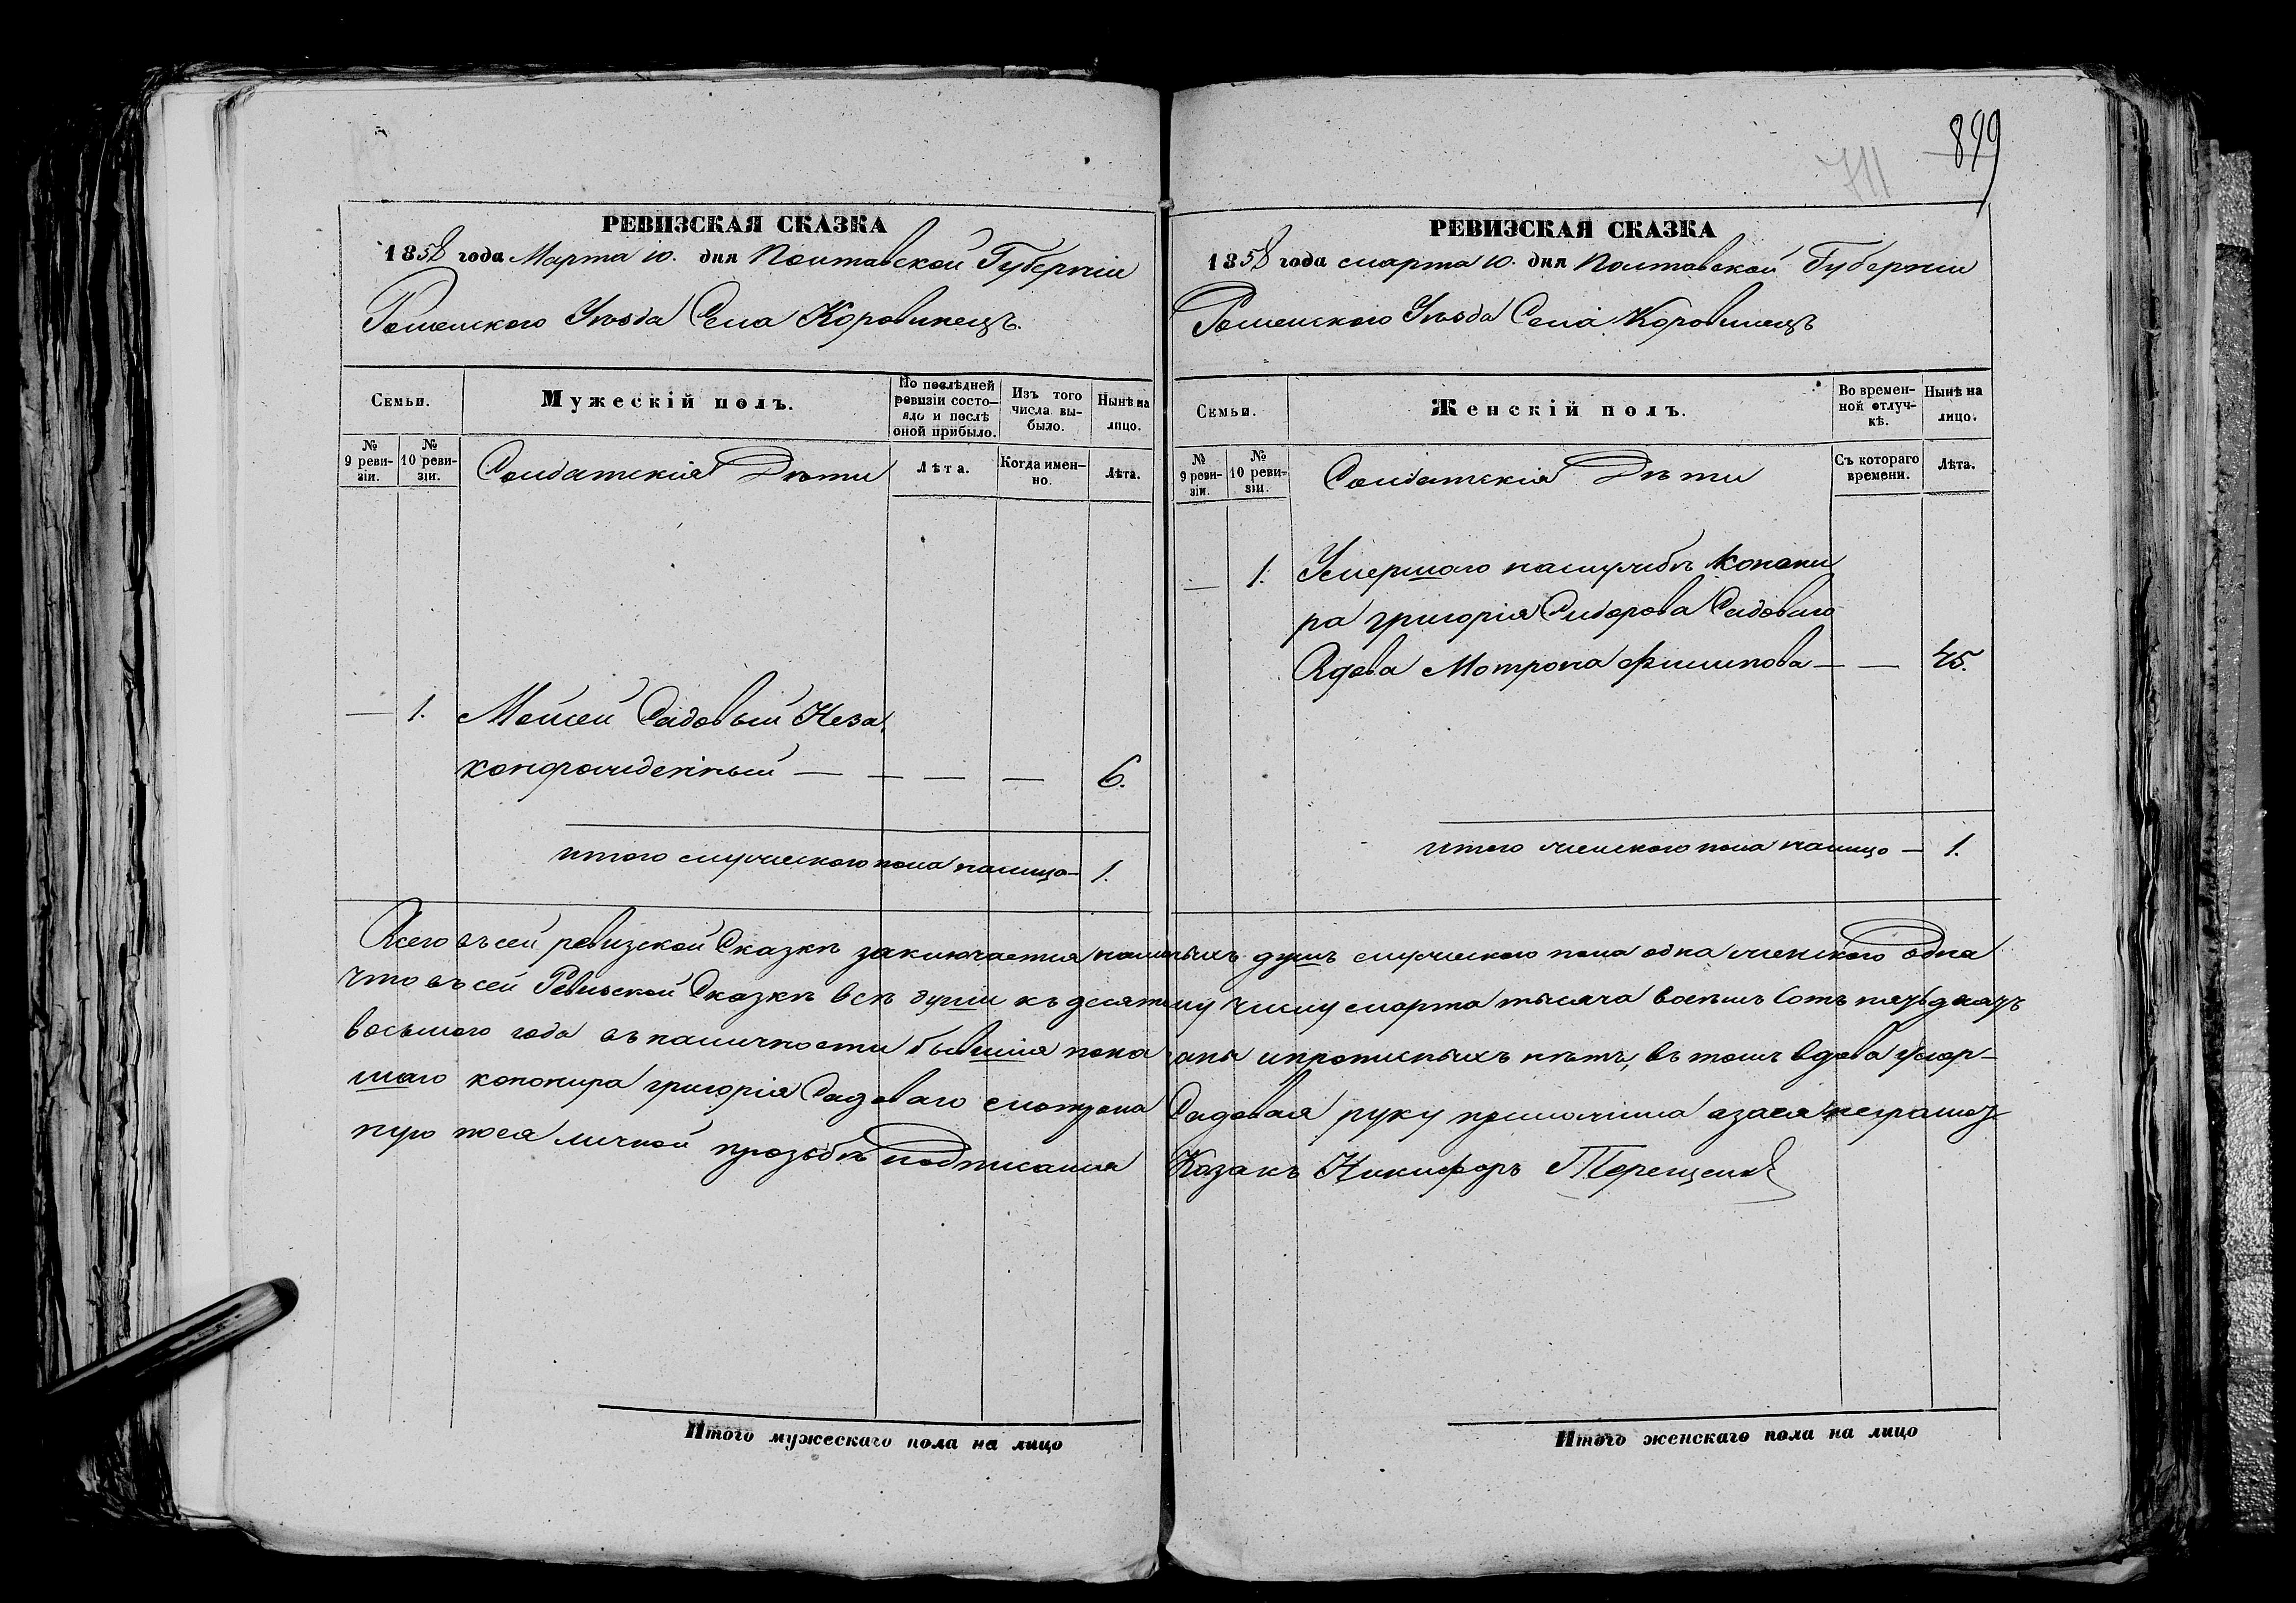 899
711
РЕВИЗСКАЯ СКАЗКА
1858 года Марта 10. дня Полтавской Губерніи
Роменского Уѣзда Села Коровинецъ.
Семьи.
Мужескій полъ.
По послѣдней ревизіи состояло и послѣ оной прибыло.
Изъ того числа выбыло.
Нынѣ на лицо.
№ 9 ревизіи.
№ 10 ревизіи.
Солдатскія Дѣти
Лѣта.
Когда именно.
Лѣта.
— 1. Мойсей Садовый Неза
конорожденный — — — — 6.
итого мужеского пола налицо — 1.
РЕВИЗСКАЯ СКАЗКА
1858 года марта 10. дня Полтавской Губерніи
Роменского Уѣзда Села Коровинецъ
Семьи.
Женскій полъ.
Во временной отлучкѣ.
Нынѣ на лицо.
№ 9 ревизіи.
№ 10 ревизіи.
Солдатскія Дѣти
Съ котораго времени.
Лѣта.
— 1. Умершого наслужбѣ Конони
ра григорія Сидорова Садоваго
Вдова Мотрона Филипова — — 45.
итого женского пола налицо — 1.
Всего въ сей ревизской Сказкѣ заключается наличныхъ душъ мужеского пола одна женского одна
что въ сей Ревизской Сказкѣ всѣ души къ десятому числу марта тысяча восемь сотъ пятьдесятъ
восьмого года въ наличности бывшія показаны ипрописныхъ нѣтъ, въ томъ вдова умер-
шаго кононира григорія Садоваго Мотрона Садовая руку приложила азаея неграмот
ную поея личной прозьбѣ подписался Козакъ Никифоръ Терещенко
Итого мужескаго пола на лицо
Итого женскаго пола на лицо